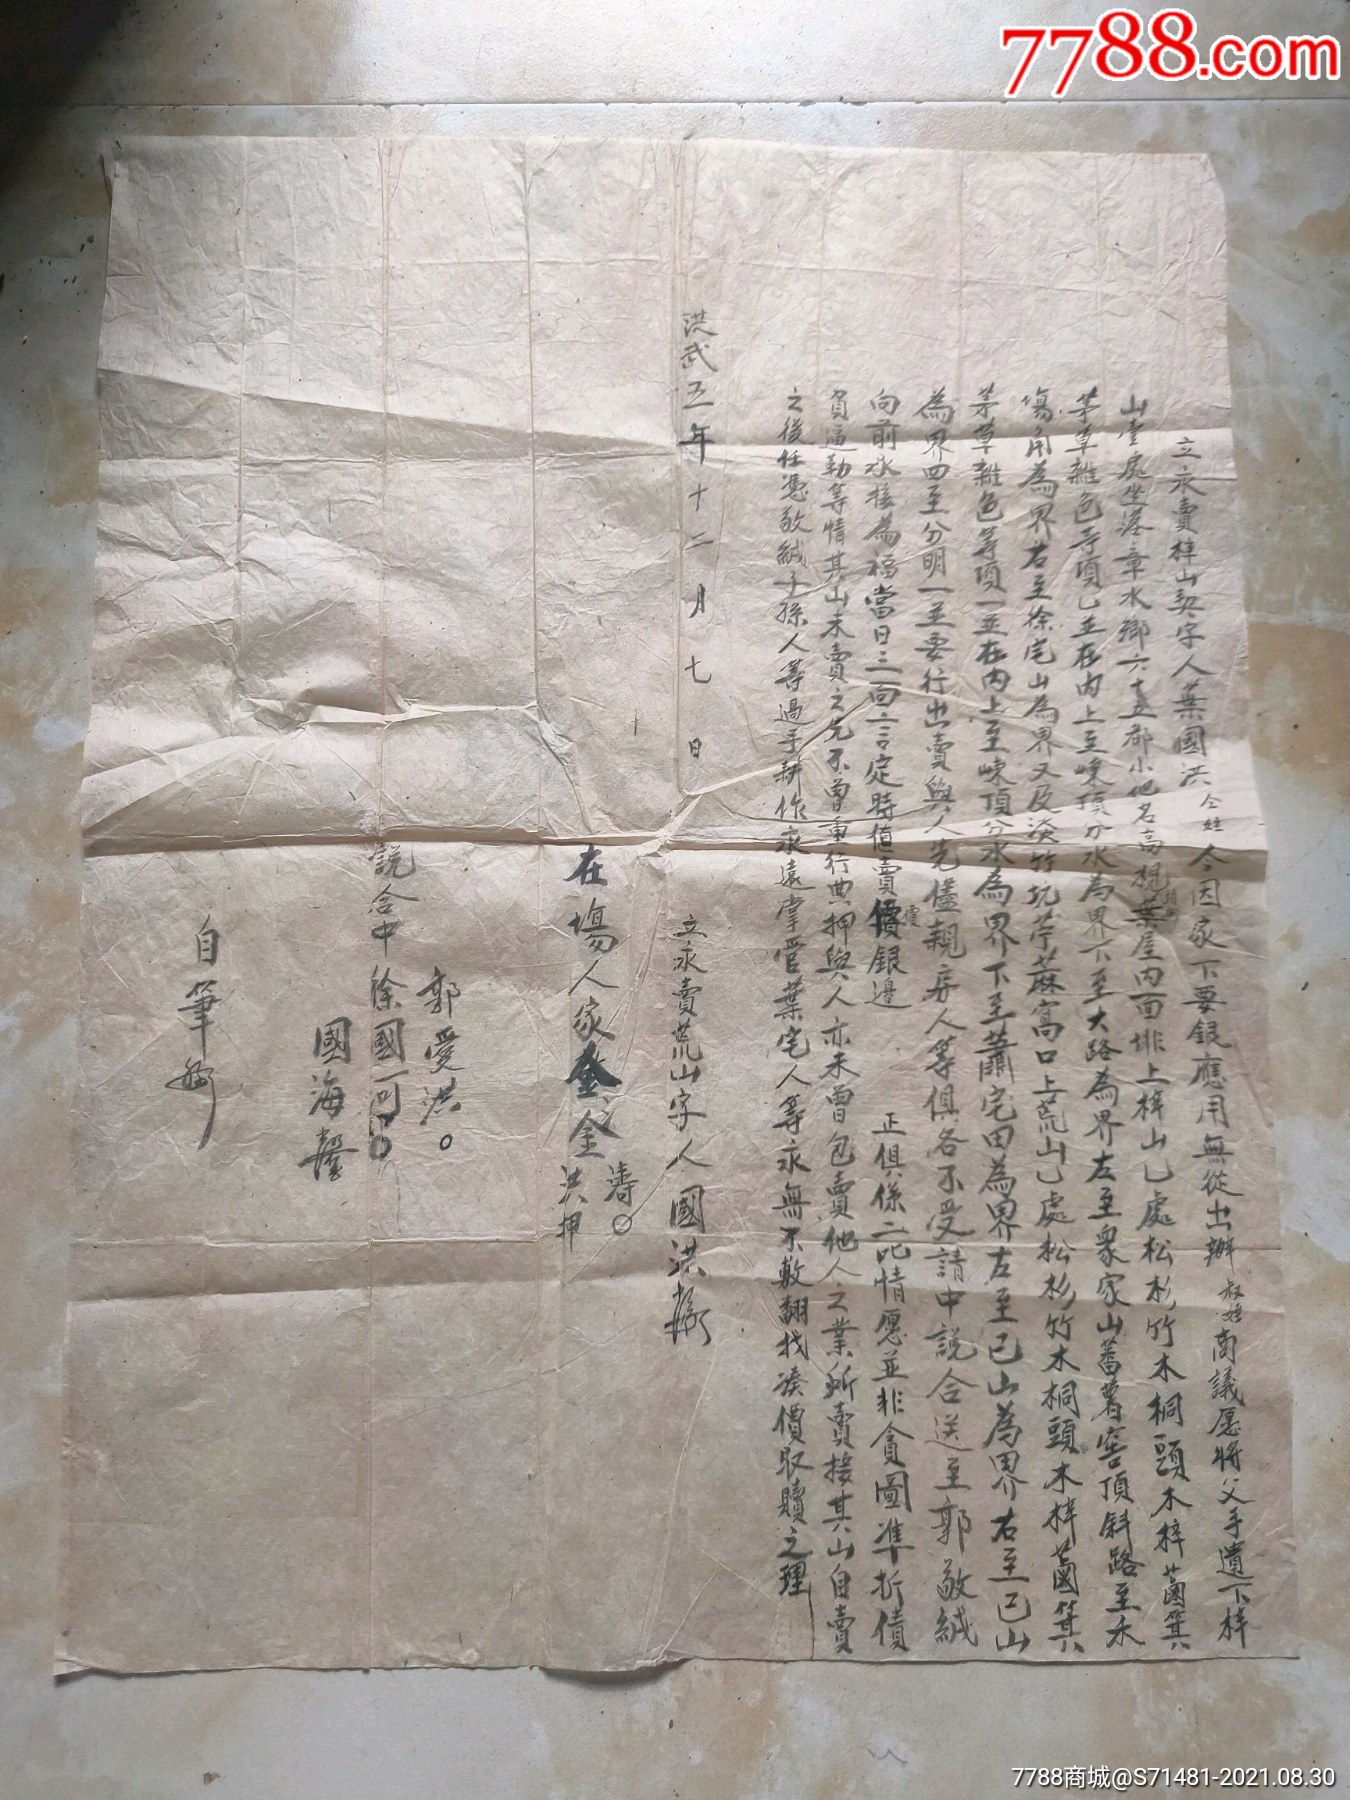 7788.com
立永賣梓山契字人葉國洪仝姪今因家下要銀應用無從出辦叔姪商議愿將父手遺下梓
山壹處坐落章水鄉六十五都小地名高視葉屋內面排上梓山乙處松杉竹木桐頭木梓茵箕
茅草雜色等項乙並在內上至崠頂分水為界下至大路為界左至眾家山蕃薯窖頂斜路至水
塲角為界右至徐宅山為界又及淡竹坑苧蔴窩口上荒山乙處松杉竹木桐頭木梓茵箕
茅草雜色等項一並在內上至崠頂分水為界下至蕭宅田為界左至已山為界右至已山
為界四至分明一並要行出賣與人先儘親房人等俱各不受請中說合送至郭敬緘
向前承接為福當日三面言定時值賣價銀邊 正俱係二比情愿並非貪圖準折債
負逼勒等情其山未賣之先不曾重行典押與人亦未曾包賣他人之業所賣接其山自賣
之後任憑敬緘子孫人等過手耕作永遠掌管葉宅人等永無不敷翻找湊價取贖之理
洪武五年十二月七日
立永賣荒山字人國洪
在塲人家金
濤
洪押
郭愛洪
說合中徐國可
國海
自筆
7788商城@S71481-2021.08.30